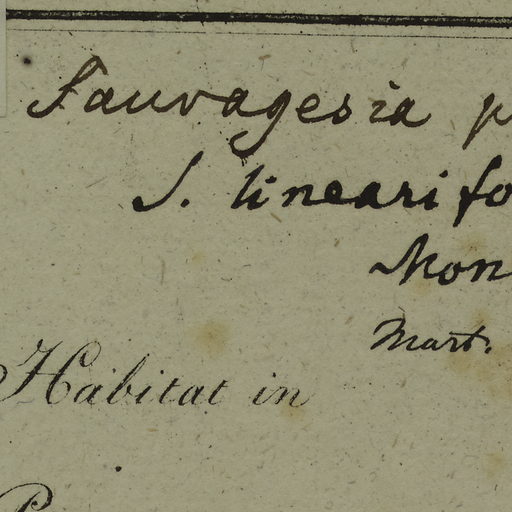 Sauvagesia p
S. linearifo
Mon
Mart.
Habitat in